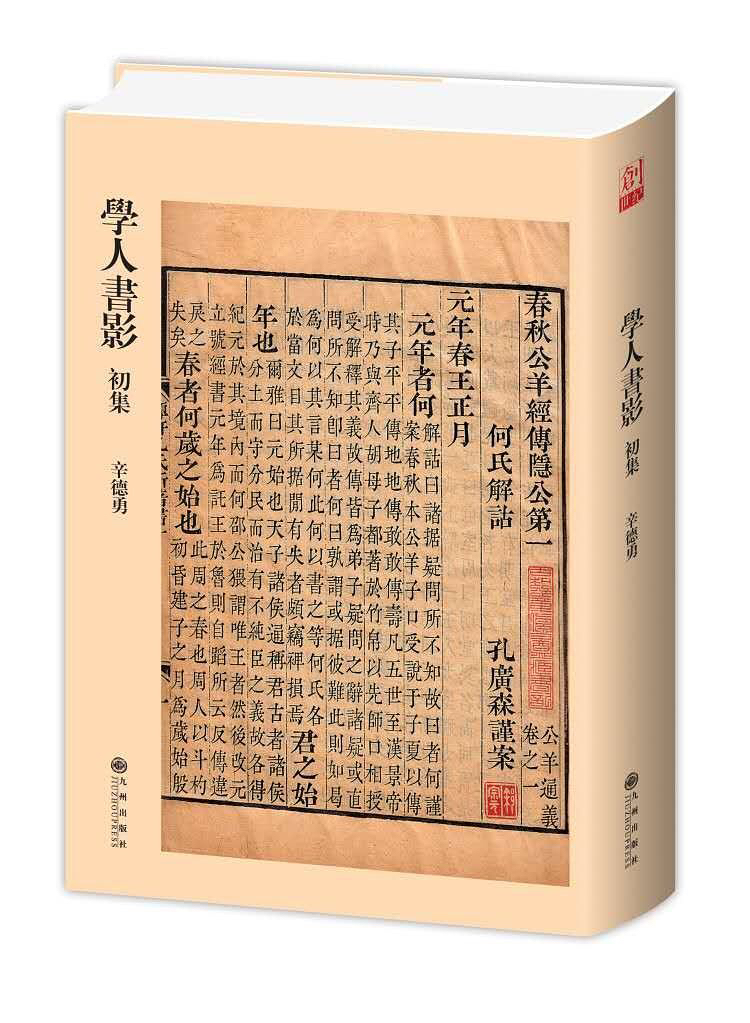 學人書影
初集
辛德勇
九州出版社
JIUZHOUPRESS
春秋公羊經傳隱公第一
公羊通義
卷之一
何氏解詁
孔廣森謹案
元年春王正月
元年者何
解詁曰諸据疑問所不知故曰者何謹
案春秋本公羊子口受說于子夏以傳
其子平平傳地地傳敢敢傳壽凡五世至漢景帝
時乃與齊人胡母子都著於竹帛以先師口相授
受解釋其義故傳皆爲弟子疑問之辭諸疑或直
問所不知卽曰者何曰孰謂或据彼難此則如曷
爲何以其言某何此何以書之等何氏各
於當文目其所据閒有失者頗竊裨損焉
君之始
年也
爾雅曰元始也天子諸侯通稱君古者諸侯
分土而守分民而治有不純臣之義故各得
紀元於其境內而何邵公猥謂唯王者然後改元
立號經書元年爲託王於魯則自蹈所云反傳違
戾之
失矣
春者何歲之始也
此周之春也周人以斗杓
初昏建子之月爲歲始殷
創世紀
學人書影
初集
辛德勇
九州出版社
JIUZHOUPRESS